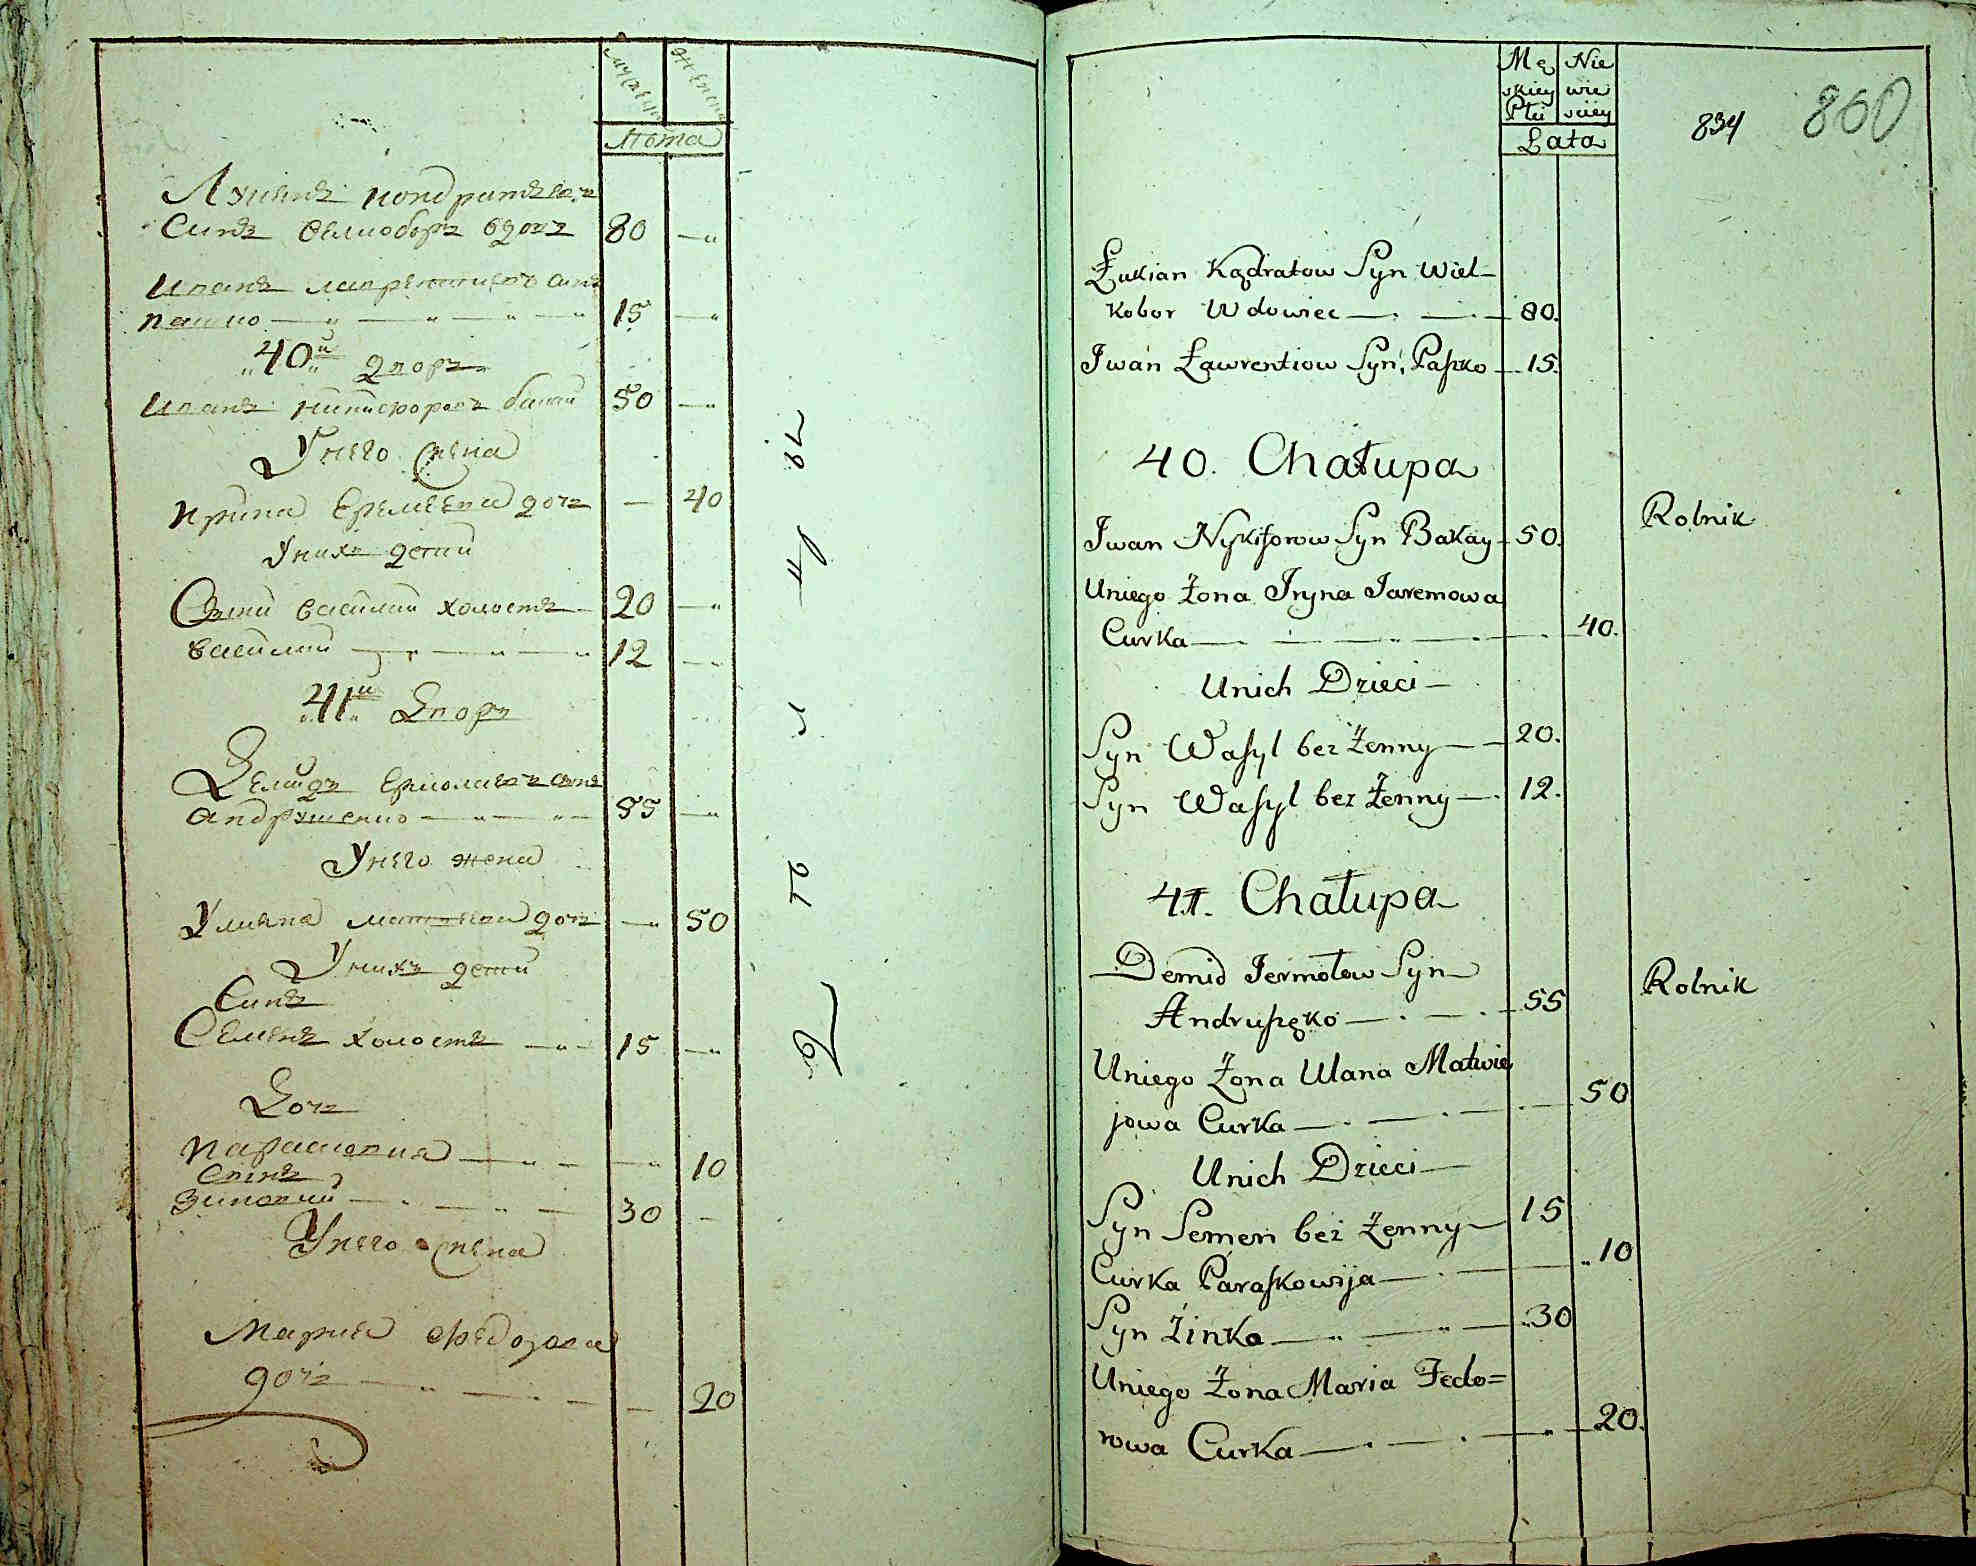 Лета
Лукянъ Кондратьевъ
Синъ Велкоборъ вдовъ 80 —„
Иванъ Лаврентиевъ синъ
Пашко — „ — „ — „ — „ 15 —„
„40й„ Дворъ
Иванъ Никифоровъ Бакай 50 —„
У него жена
Ирина Еремеева дочь — 40
У нихъ дети
Сыни Василий холостъ 20 —„
Василий — „ — „ — „ 12 —„
„41й„ Дворъ
Демидъ Ермолаевъ синъ
Андрушенко — „ — „ — 55 —„
У него жена
Улияна Матвеева дочь —„ 50
У нихъ дети
Синъ
Семенъ холостъ — „ — 15 —„
Дочь
Параскевия — „ — —„ 10
Синъ
Зиновий — „ — „ — 30 —
У него жена
Мария Федорова
дочь — „ — „ — — 20
Mę Nie
skiey wie
Płci sciey
Lata
834 860
Łukian Kądratow Syn Wiel-
kobor Wdowiec — . — . — 80.
Iwan Ławrentiow Syn Paszko — 15.
40. Chałupa
Iwan Nykiforow Syn Bakay — 50. Rolnik
Uniego Żona Iryna Jaremowa
Curka — . — . — . — 40.
Unich Dzieci —
Syn Wasyl bez Żenny — — 20.
Syn Wasyl bez Żenny — . 12.
41. Chałupa
Demid Jermołow Syn
Andruszęko — . — . — 55 Rolnik
Uniego Żona Ulana Matwie
jowa Curka — . — . — . — 50
Unich Dzieci —
Syn Semen bez Żenny — 15
Curka Paraskowija — . — „ 10
Syn Zinko — „ — „ — „ 30
Uniego Żona Maria Fedo=
rowa Curka — . — . — „ — 20.